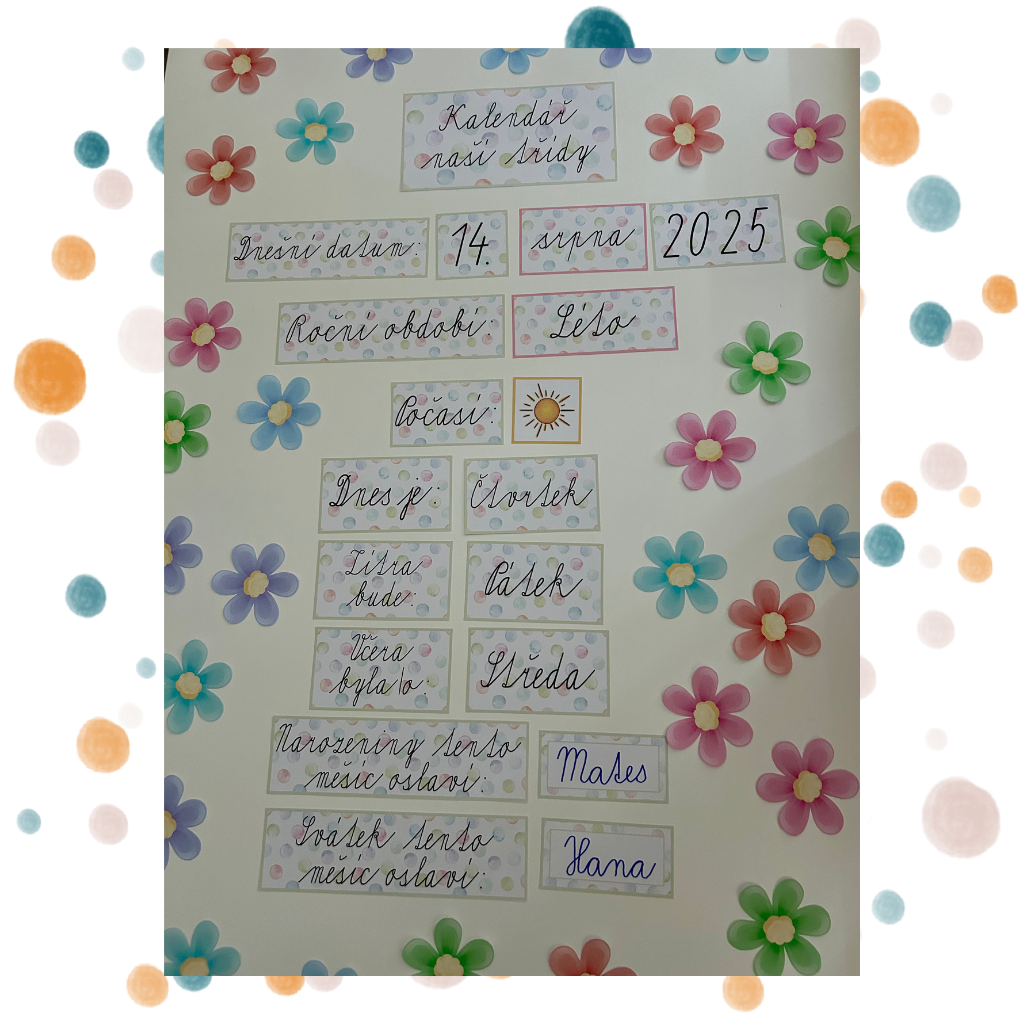 Kalendář
naší třídy
Dnešní datum: 14. srpna 2025
Roční období: Léto
Počasí:
Dnes je: Čtvrtek
Zítra
bude: Pátek
Včera
byla/o: Středa
Narozeniny tento
měsíc oslaví: Mates
Svátek tento
měsíc oslaví: Hana